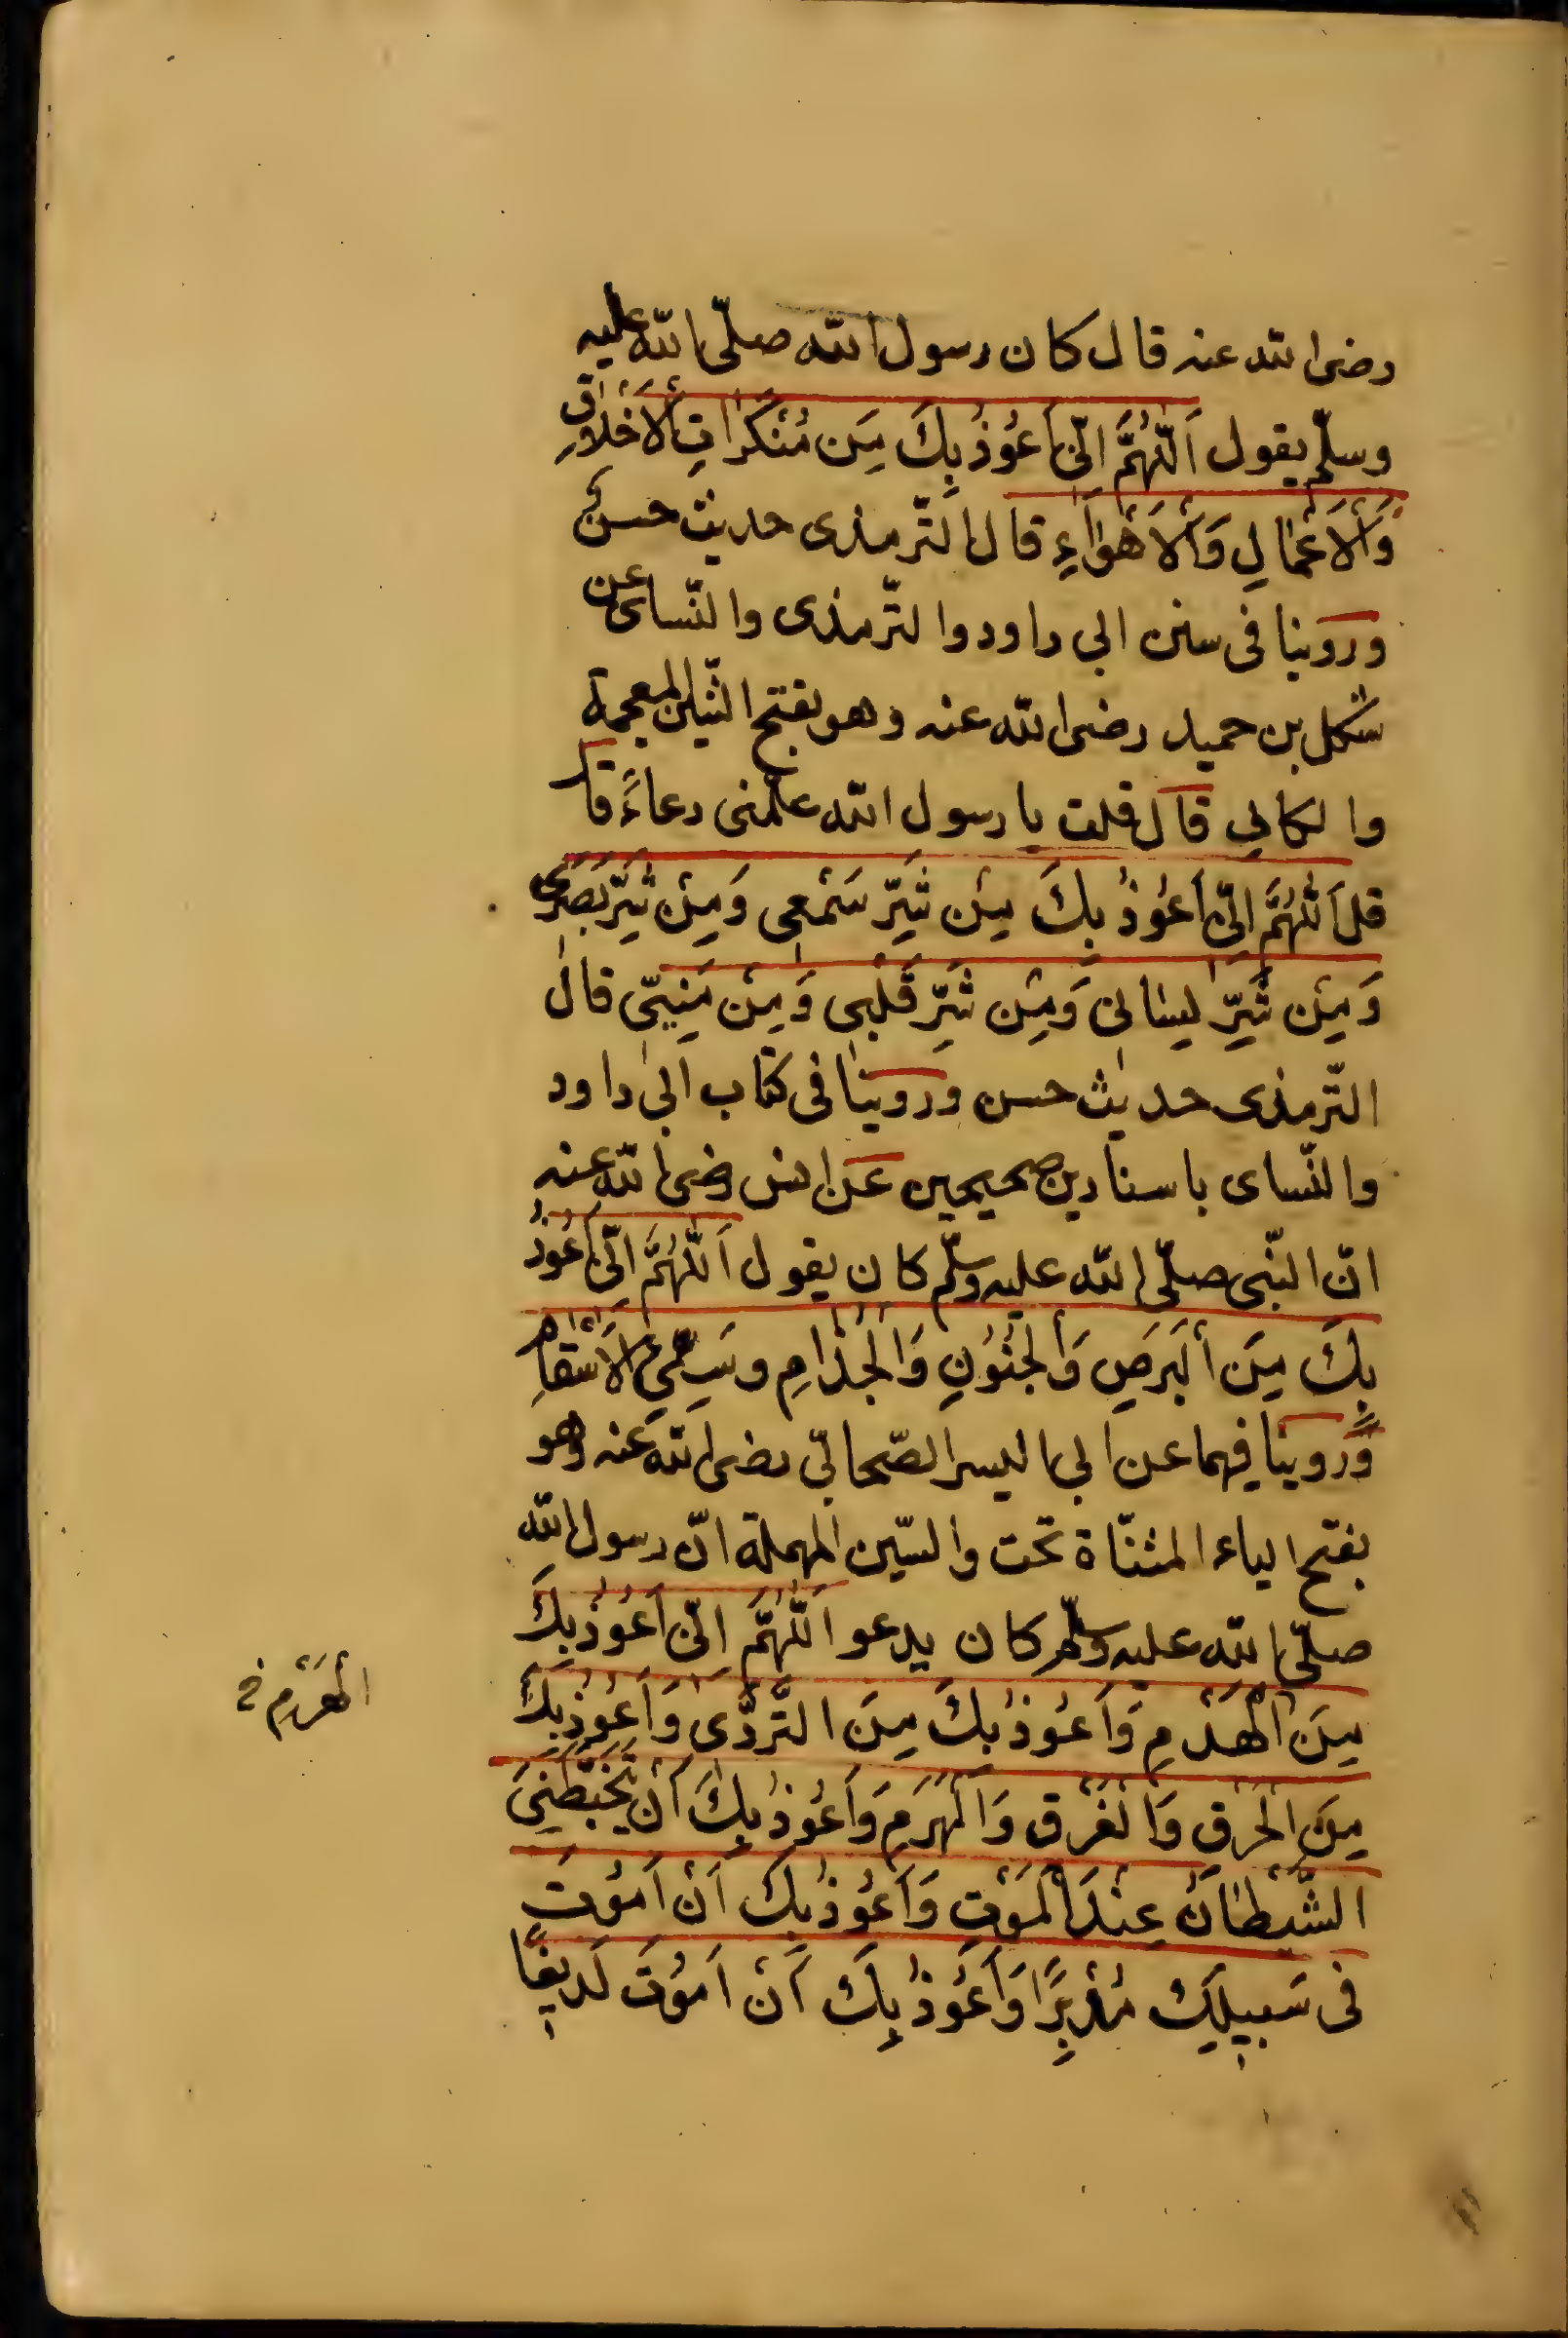 رضى الله عنه قال كان رسول الله صلّى الله عليه
وسلّم يقول اَللّٰهُمَّ اِنّى اَعُوْذُ بِكَ مِنْ مُنْكَرَاتِ الْاَخْلَاقِ
وَالْاَعْمَالِ وَالْاَهْوَاۤءِ قال الترّمذى حديث حسن
وروينا فى سنن ابى داود والترّمذى والنّساى عن
شكل بن حميد رضى الله عنه وهو بفتح الشّين المعجمة
والكاف قال قلت يا رسول الله علّمنى دعاءً قال
قل اَللّٰهُمَّ اِنّى اَعُوْذُ بِكَ مِنْ شَرِّ سَمْعِى وَمِنْ شَرِّ بَصَرِى
وَمِنْ شَرِّ لِسَانِى وَمِنْ شَرِّ قَلْبِى وَمِنْ مَنِيِّى قال
الترّمذى حديث حسن وروينا فى كتاب ابى داود
والنّساى باسنادين صحيحين عن انس رضى الله عنه
انّ النّبى صلّى الله عليه وسلّم كان يقول اَللّٰهُمَّ اِنّى اَعُوْذُ
بِكَ مِنَ الْبَرَصِ وَالْجُنُوْنِ وَالْجُذَامِ وسَيِّئِ الْاَسْقَامِ
وروينا فيهما عن ابى اليسر الصّحابىّ رضى الله عنه وهو
بفتح الياء المثنّاة تحت والسّين المهملة انّ رسول الله
صلّى الله عليه وسلّم كان يدعو اَللّٰهُمَّ اِنّى اَعُوْذُ بِكَ
مِنَ الْهَدْمِ وَاَعُوْذُ بِكَ مِنَ التَّرَدِّى وَاَعُوْذُ بِكَ
مِنَ الْحَرَقِ وَالْغَرَقِ وَالْهَرَمِ وَاَعُوْذُ بِكَ اَنْ يَتَخَبَّطَنِىَ
الشَّيْطَانُ عِنْدَ الْمَوْتِ وَاَعُوْذُ بِكَ اَنْ اَمُوْتَ
فى سَبِيلِكَ مُدْبِرًا وَاَعُوْذُ بِكَ اَنْ اَمُوْتَ لَدِيغًا